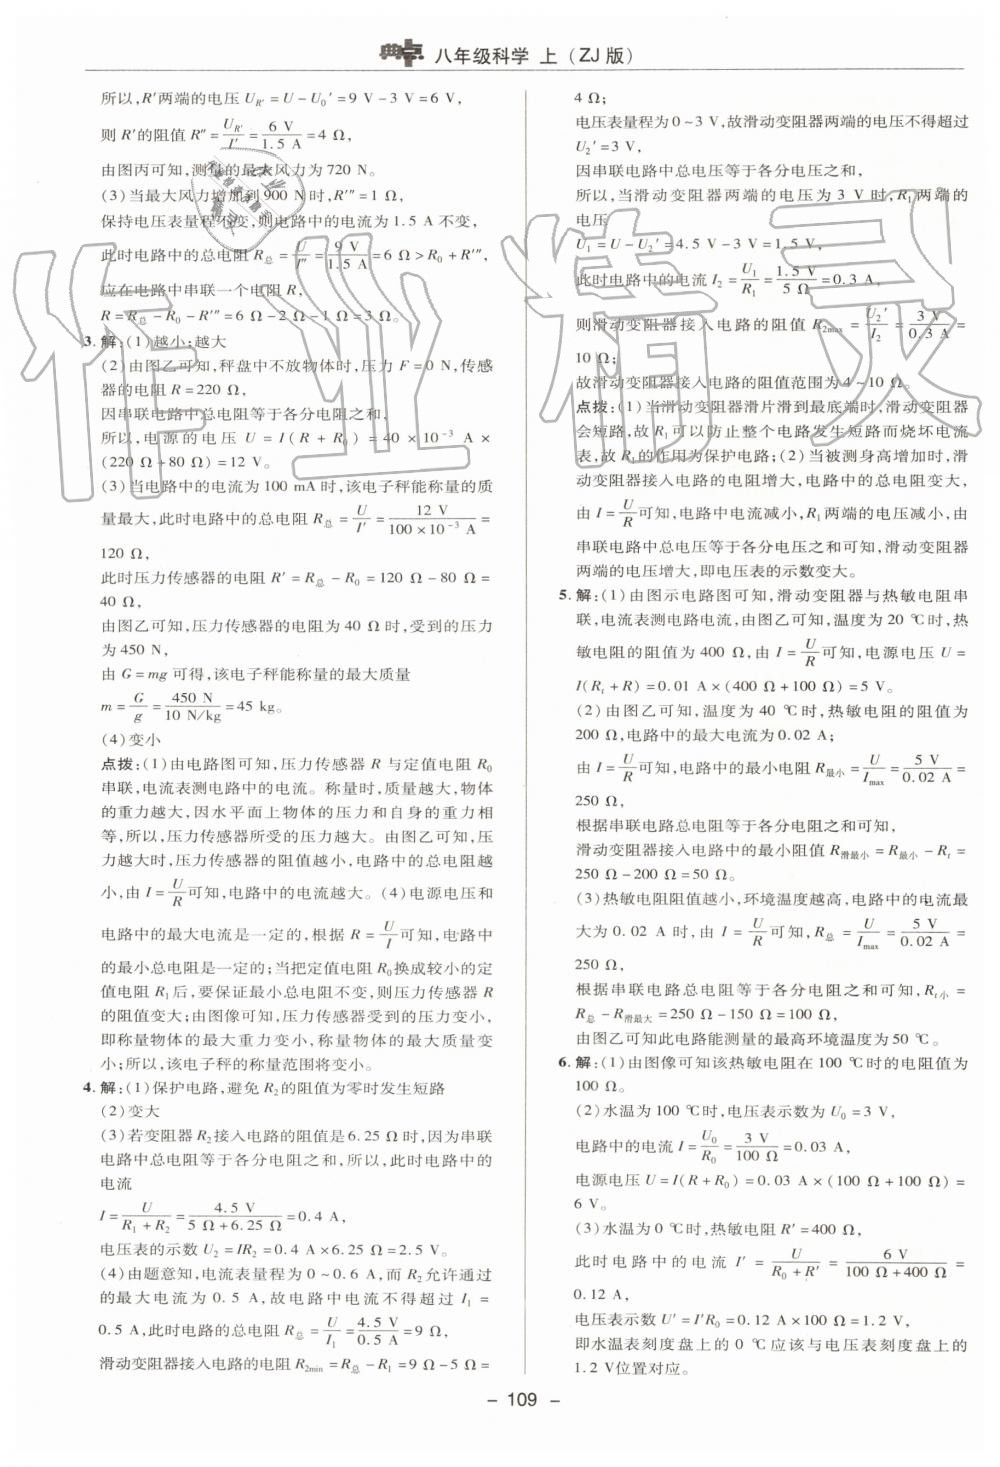 典点 八年级科学 上(ZJ版)
所以,R′两端的电压 U_R′=U-U₀′=9 V-3 V=6 V,
则 R′的阻值 R″=U_R′/I′=6 V/1.5 A=4 Ω,
由图丙可知,测得的最大风力为720 N。
(3)当最大风力增加到900 N时,R‴=1 Ω,
保持电压表量程不变,则电路中的电流为1.5 A不变,
此时电路中的总电阻 R总=U/I″=9 V/1.5 A=6 Ω>R₀+R‴,
应在电路中串联一个电阻 R,
R=R总-R₀-R‴=6 Ω-2 Ω-1 Ω=3 Ω。
3. 解:(1)越小;越大
(2)由图乙可知,秤盘中不放物体时,压力 F=0 N,传感
器的电阻 R=220 Ω,
因串联电路中总电阻等于各分电阻之和,
所以,电源的电压 U=I(R+R₀)=40×10⁻³ A×
(220 Ω+80 Ω)=12 V。
(3)当电路中的电流为100 mA时,该电子秤能称量的质
量最大,此时电路中的总电阻 R总=U/I′=12 V/100×10⁻³ A=
120 Ω,
此时压力传感器的电阻 R′=R总-R₀=120 Ω-80 Ω=
40 Ω,
由图乙可知,压力传感器的电阻为40 Ω时,受到的压力
为450 N,
由 G=mg 可得,该电子秤能称量的最大质量
m=G/g=450 N/10 N/kg=45 kg。
(4)变小
点拨:(1)由电路图可知,压力传感器 R 与定值电阻 R₀
串联,电流表测电路中的电流。称量时,质量越大,物体
的重力越大,因水平面上物体的压力和自身的重力相
等,所以,压力传感器所受的压力越大。由图乙可知,压
力越大时,压力传感器的阻值越小,电路中的总电阻越
小,由 I=U/R可知,电路中的电流越大。(4)电源电压和
电路中的最大电流是一定的,根据 R=U/I可知,电路中
的最小总电阻是一定的;当把定值电阻 R₀换成较小的定
值电阻 R₁后,要保证最小总电阻不变,则压力传感器 R
的阻值变大;由图像可知,压力传感器受到的压力变小,
即称量物体的最大重力变小,称量物体的最大质量变
小;所以,该电子秤的称量范围将变小。
4. 解:(1)保护电路,避免 R₂的阻值为零时发生短路
(2)变大
(3)若变阻器 R₂接入电路的阻值是6.25 Ω时,因为串联
电路中总电阻等于各分电阻之和,所以,此时电路中的
电流
I=U/(R₁+R₂)=4.5 V/(5 Ω+6.25 Ω)=0.4 A,
电压表的示数 U₂=IR₂=0.4 A×6.25 Ω=2.5 V。
(4)由题意知,电流表量程为0~0.6 A,而 R₂允许通过
的最大电流为 0.5 A,故电路中电流不得超过 I₁=
0.5 A,此时电路的总电阻 R总=U/I₁=4.5 V/0.5 A=9 Ω,
滑动变阻器接入电路的电阻 R₂min=R总-R₁=9 Ω-5 Ω=
4 Ω;
电压表量程为0~3 V,故滑动变阻器两端的电压不得超过
U₂′=3 V,
因串联电路中总电压等于各分电压之和,
所以,当滑动变阻器两端的电压为3 V时,R₁两端的
电压
U₁=U-U₂′=4.5 V-3 V=1.5 V,
此时电路中的电流 I₂=U₁/R₁=1.5 V/5 Ω=0.3 A,
则滑动变阻器接入电路的阻值 R₂max=U₂′/I₂=3 V/0.3 A=
10 Ω;
故滑动变阻器接入电路的阻值范围为4~10 Ω。
点拨:(1)当滑动变阻器滑片滑到最底端时,滑动变阻器
会短路,故 R₁可以防止整个电路发生短路而烧坏电流
表,故 R₁的作用为保护电路;(2)当被测身高增加时,滑
动变阻器接入电路的电阻增大,电路中的总电阻变大,
由 I=U/R可知,电路中电流减小,R₁两端的电压减小,由
串联电路中总电压等于各分电压之和可知,滑动变阻器
两端的电压增大,即电压表的示数变大。
5. 解:(1)由图示电路图可知,滑动变阻器与热敏电阻串
联,电流表测电路电流,由图乙可知,温度为20 ℃时,热
敏电阻的阻值为400 Ω,由 I=U/R可知,电源电压 U=
I(Rt+R)=0.01 A×(400 Ω+100 Ω)=5 V。
(2)由图乙可知,温度为40 ℃时,热敏电阻的阻值为
200 Ω,电路中的最大电流为0.02 A;
由 I=U/R可知,电路中的最小电阻 R最小=U/Imax=5 V/0.02 A=
250 Ω,
根据串联电路总电阻等于各分电阻之和可知,
滑动变阻器接入电路中的最小阻值 R滑最小=R最小-Rt=
250 Ω-200 Ω=50 Ω。
(3)热敏电阻阻值越小,环境温度越高,电路中的电流最
大为0.02 A时,由 I=U/R可知,R总=U/Imax=5 V/0.02 A=
250 Ω,
根据串联电路总电阻等于各分电阻之和可知,Rt小=
R总-R滑最大=250 Ω-150 Ω=100 Ω,
由图乙可知此电路能测量的最高环境温度为50 ℃。
6. 解:(1)由图像可知该热敏电阻在100 ℃时的电阻值为
100 Ω。
(2)水温为100 ℃时,电压表示数为 U₀=3 V,
电路中的电流 I=U₀/R₀=3 V/100 Ω=0.03 A,
电源电压 U=I(R+R₀)=0.03 A×(100 Ω+100 Ω)=
6 V。
(3)水温为0 ℃时,热敏电阻 R′=400 Ω,
此时电路中的电流 I′=U/(R₀+R′)=6 V/(100 Ω+400 Ω)=
0.12 A,
电压表示数 U′=I′R₀=0.12 A×100 Ω=1.2 V,
即水温表刻度盘上的0 ℃应该与电压表刻度盘上的
1.2 V位置对应。
- 109 -
作业精灵